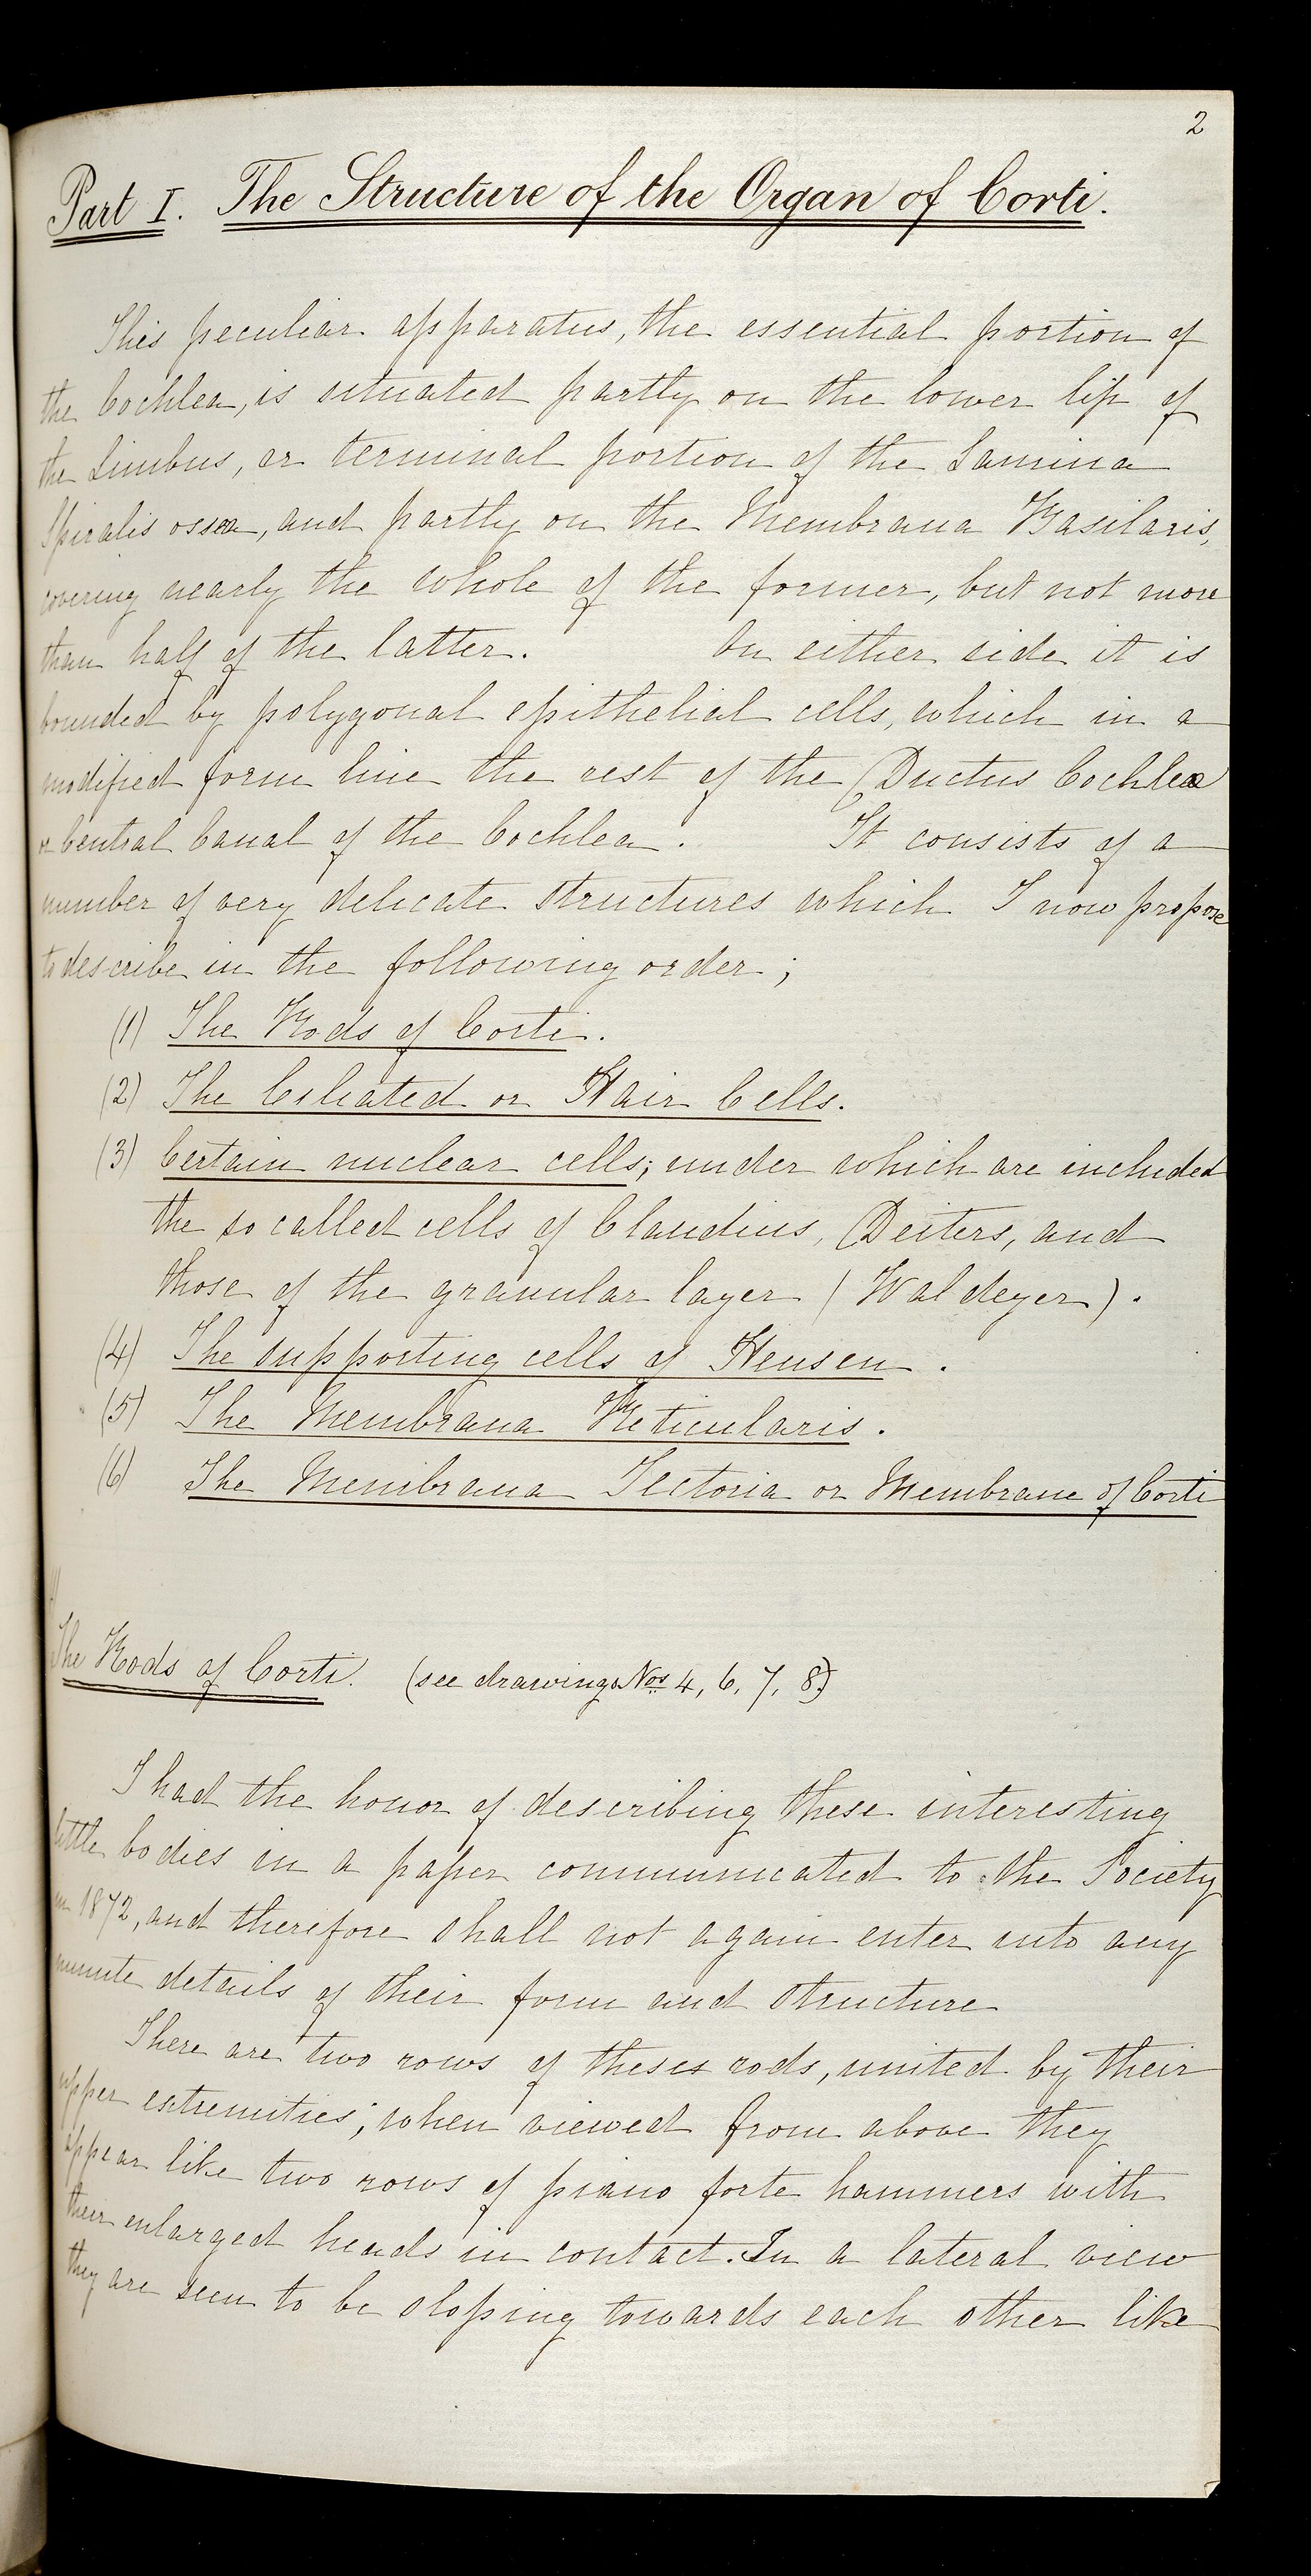 2
Part I. The Structure of the Organ of Corti.
This peculiar apparatus, the essential portion of
the Cochlea, is situated partly on the lower lip of
the Limbus, or terminal portion of the Lamina
Spiralis ossea, and partly on the Membrana Basilaris,
covering nearly the whole of the former, but not more
than half of the latter. On either side it is
bounded by polygonal epithelial cells, which in a
modified form line the rest of the Ductus Cochleae
or Central Canal of the Cochlea. It consists of a
number of very delicate structures which I now propose
to describe in the following order;
(1) The Rods of Corti.
(2) The Ciliated or Hair Cells.
(3) Certain nuclear cells; under which are included
the so called cells of Claudius, Deiters, and
those of the granular layer (Waldeyer).
(4) The supporting cells of Hensen.
(5) The Membrana Reticularis.
(6) The Membrana Tectoria or Membrane of Corti
The Rods of Corti. (see drawings Nos 4, 6, 7, 8)
I had the honor of describing these interesting
little bodies in a paper communicated to the Society
in 1872, and therefore shall not again enter into any
minute details of their form and structure
There are two rows of theses rods, united by their
upper extremities; when viewed from above they
appear like two rows of piano forte hammers with
their enlarged heads in contact. In a lateral view
they are seen to be sloping towards each other like